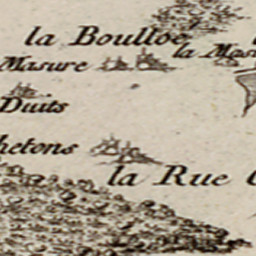 la Boulloe
la Mas
Masure
Duits
hetons
la Rue